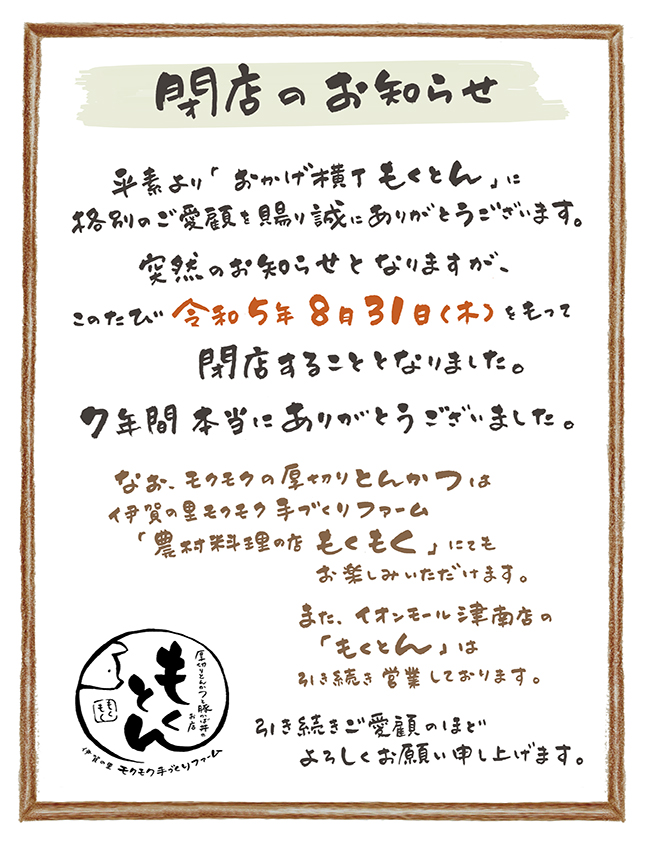 閉店のお知らせ
平素より「おかげ横丁もくとん」に
格別のご愛顧を賜り誠にありがとうございます。
突然のお知らせとなりますが、
このたび 令和5年8月31日(木)をもって
閉店することとなりました。
7年間 本当にありがとうございました。
なお、モクモクの厚切りとんかつは
伊賀の里モクモク手づくりファーム
「農村料理の店 もくもく」にても
お楽しみいただけます。
また、イオンモール津南店の
「もくとん」は
引き続き営業しております。
引き続きご愛顧のほど
よろしくお願い申し上げます。
厚切りとんかつと豚かば丼の
お店
もくとん
もくもく
伊賀の里 モクモク手づくりファーム